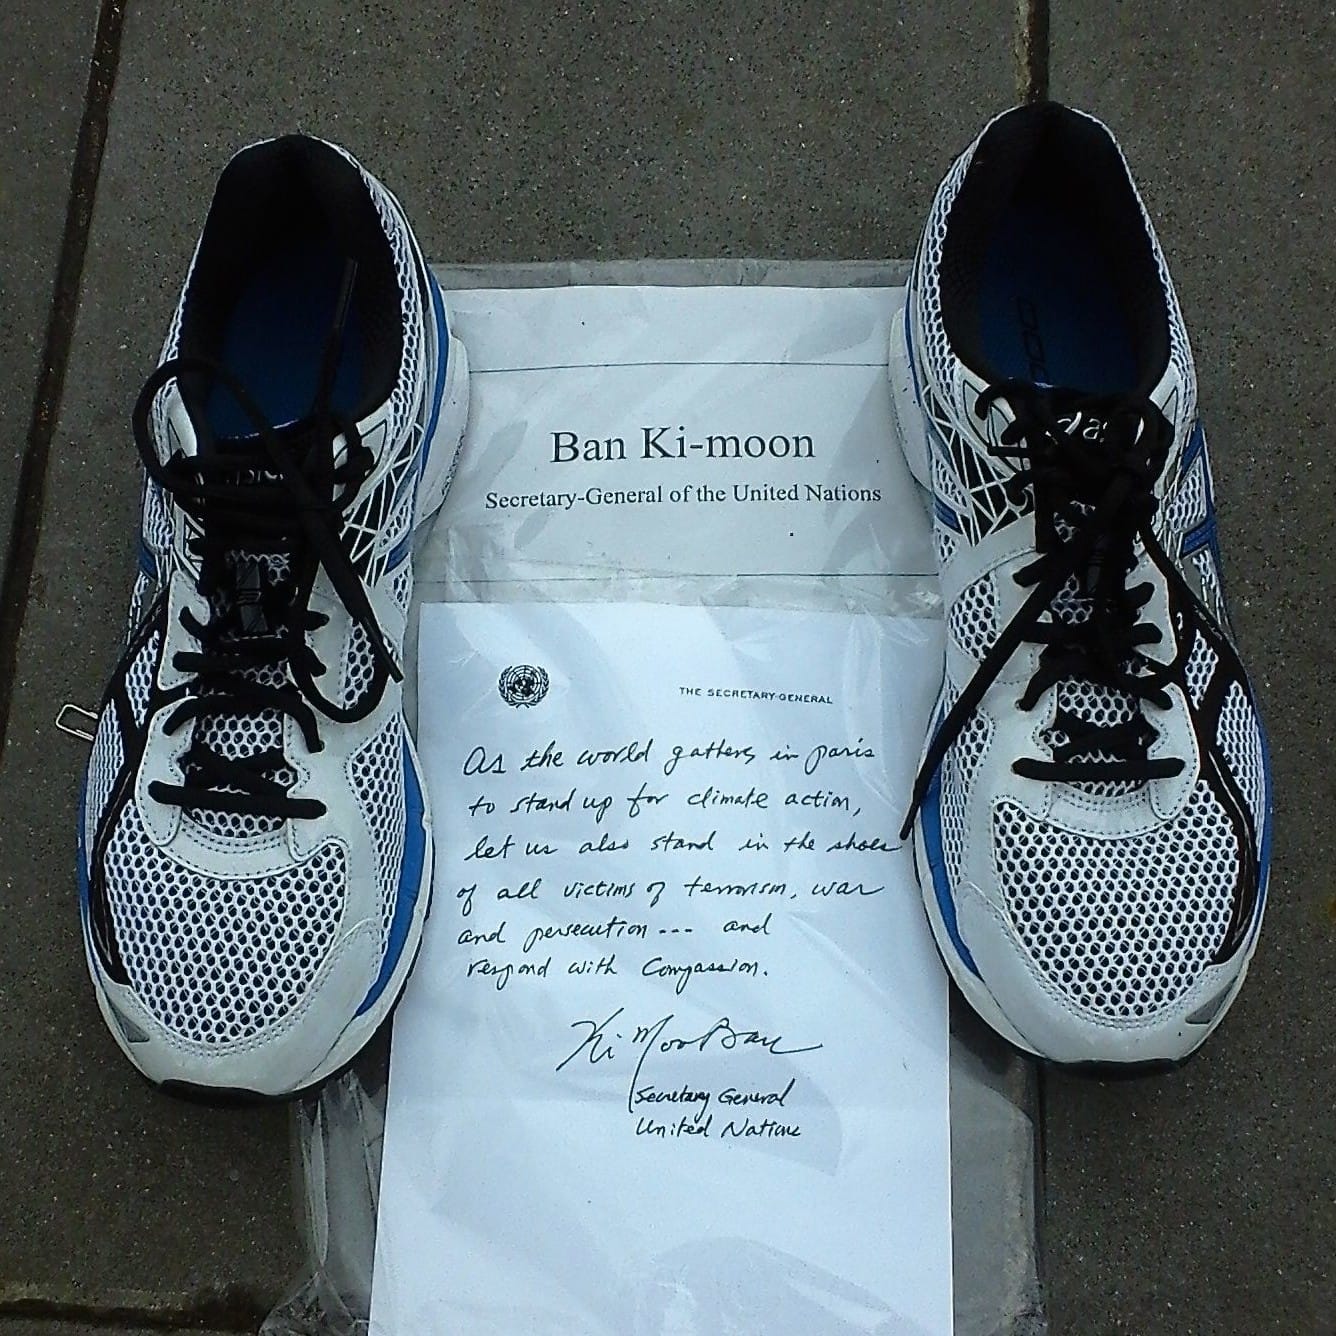 Ban Ki-moon
Secretary-General of the United Nations
THE SECRETARY-GENERAL
As the world gathers in paris
to stand up for climate action,
let us also stand in the shoes
of all victims of terrorism, war
and persecution --- and
respond with Compassion.
Ki Moon Ban
Secretary General
United Nations